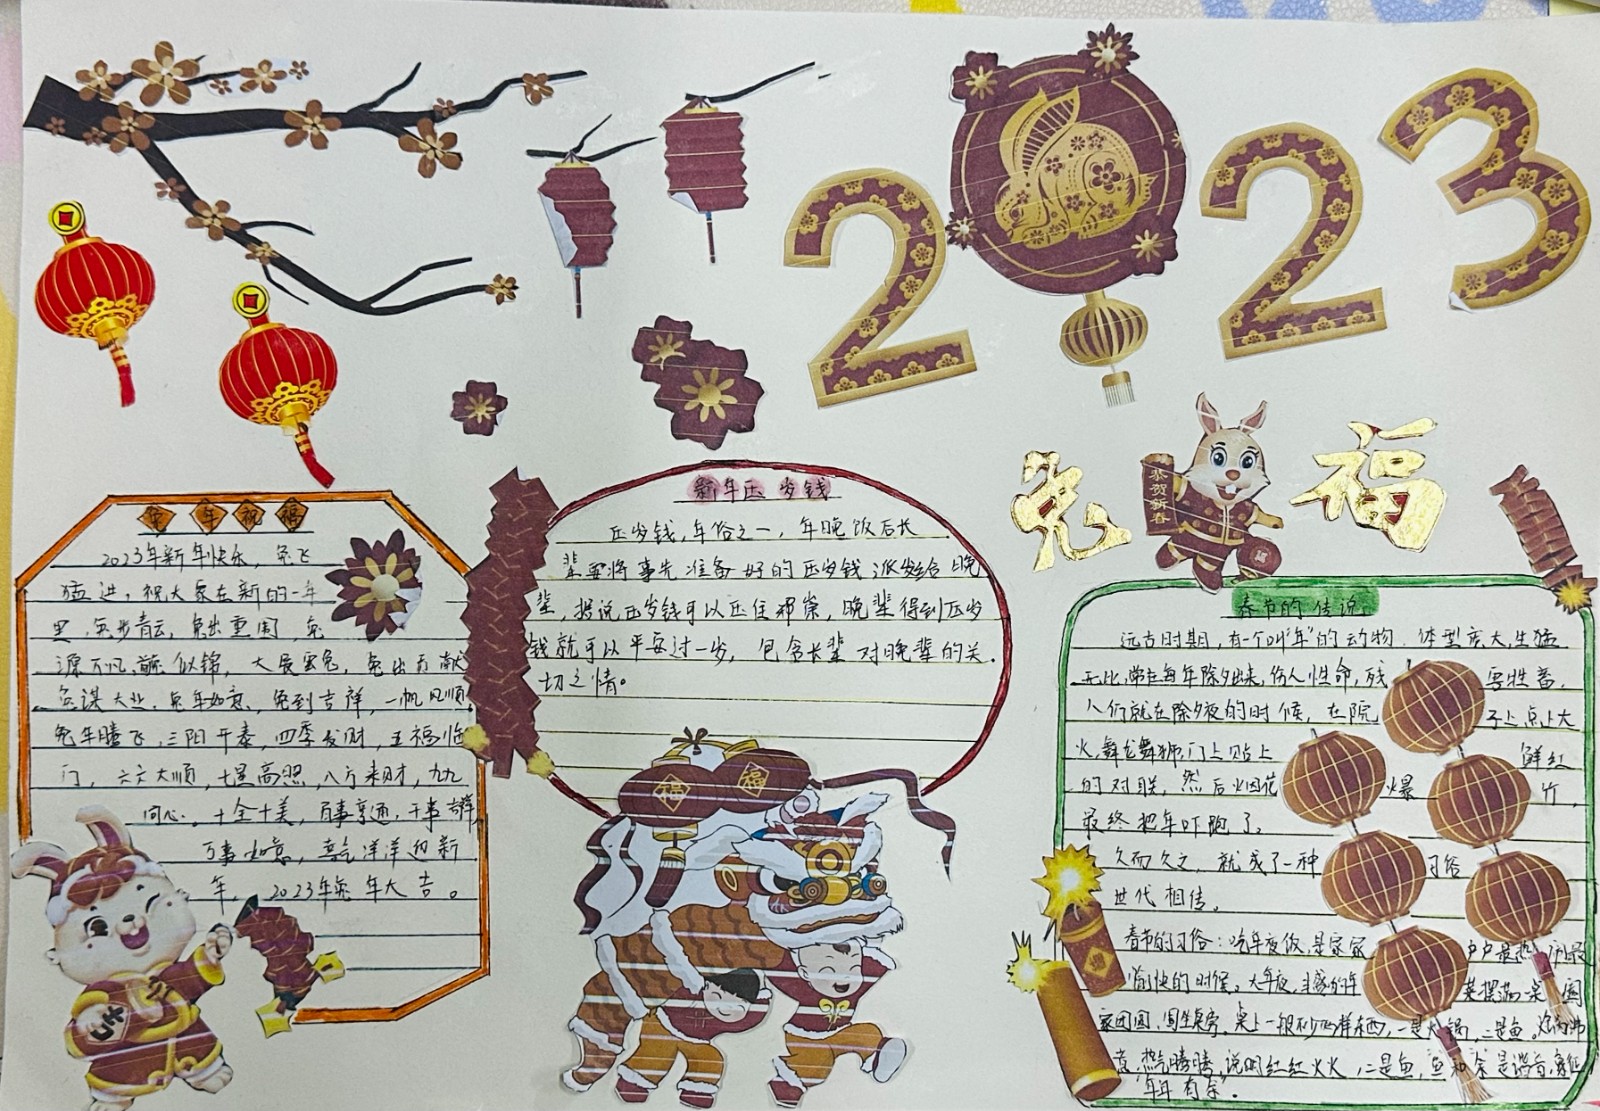 2023
兔 福
恭贺新春
福
福
福
兔年祝福
2023年新年快乐,兔飞
猛进,祝大家在新的一年
里,兔步青云,兔出重围,兔
似锦,大展宏兔,兔出贡献
兔谋大业,兔年如意,兔到吉祥,一帆风顺
兔年腾飞,三阳开泰,四季发财,五福临
门,六六大顺,七星高照,八方来财,九九
同心。十全十美,百事亨通,千事吉祥
万事如意,喜气洋洋迎新
年,2023年兔年大吉。
新年压岁钱
压岁钱,年俗之一,年晚饭后长
辈要将事先准备好的压岁钱派发给晚
辈,据说压岁钱可以压住邪祟,晚辈得到压岁
钱就可以平安过一岁,包含长辈对晚辈的关
切之情。
春节的传说
远古时期,有一个叫"年"的动物.体型庞大,生猛
无比,常在每年除夕出来,伤人性命,残害牲畜,
人们就在除夕夜的时候,在院子上点上大
火,舞龙舞狮,门上贴上鲜红
的对联,然后烟花爆竹,
最终把年吓跑了。
久而久之,就成了一种习俗
世代相传。
春节的习俗:吃年夜饭,是家家户户最热闹最
愉快的时候。大年夜,丰盛的年菜摆满一桌,阖
家团圆,围坐桌旁.桌上一般不少两样东西,一是火锅,二是鱼。火锅沸
煮,热气腾腾,说明红红火火,二是鱼,鱼和余是谐音,象征
"年年有余"。